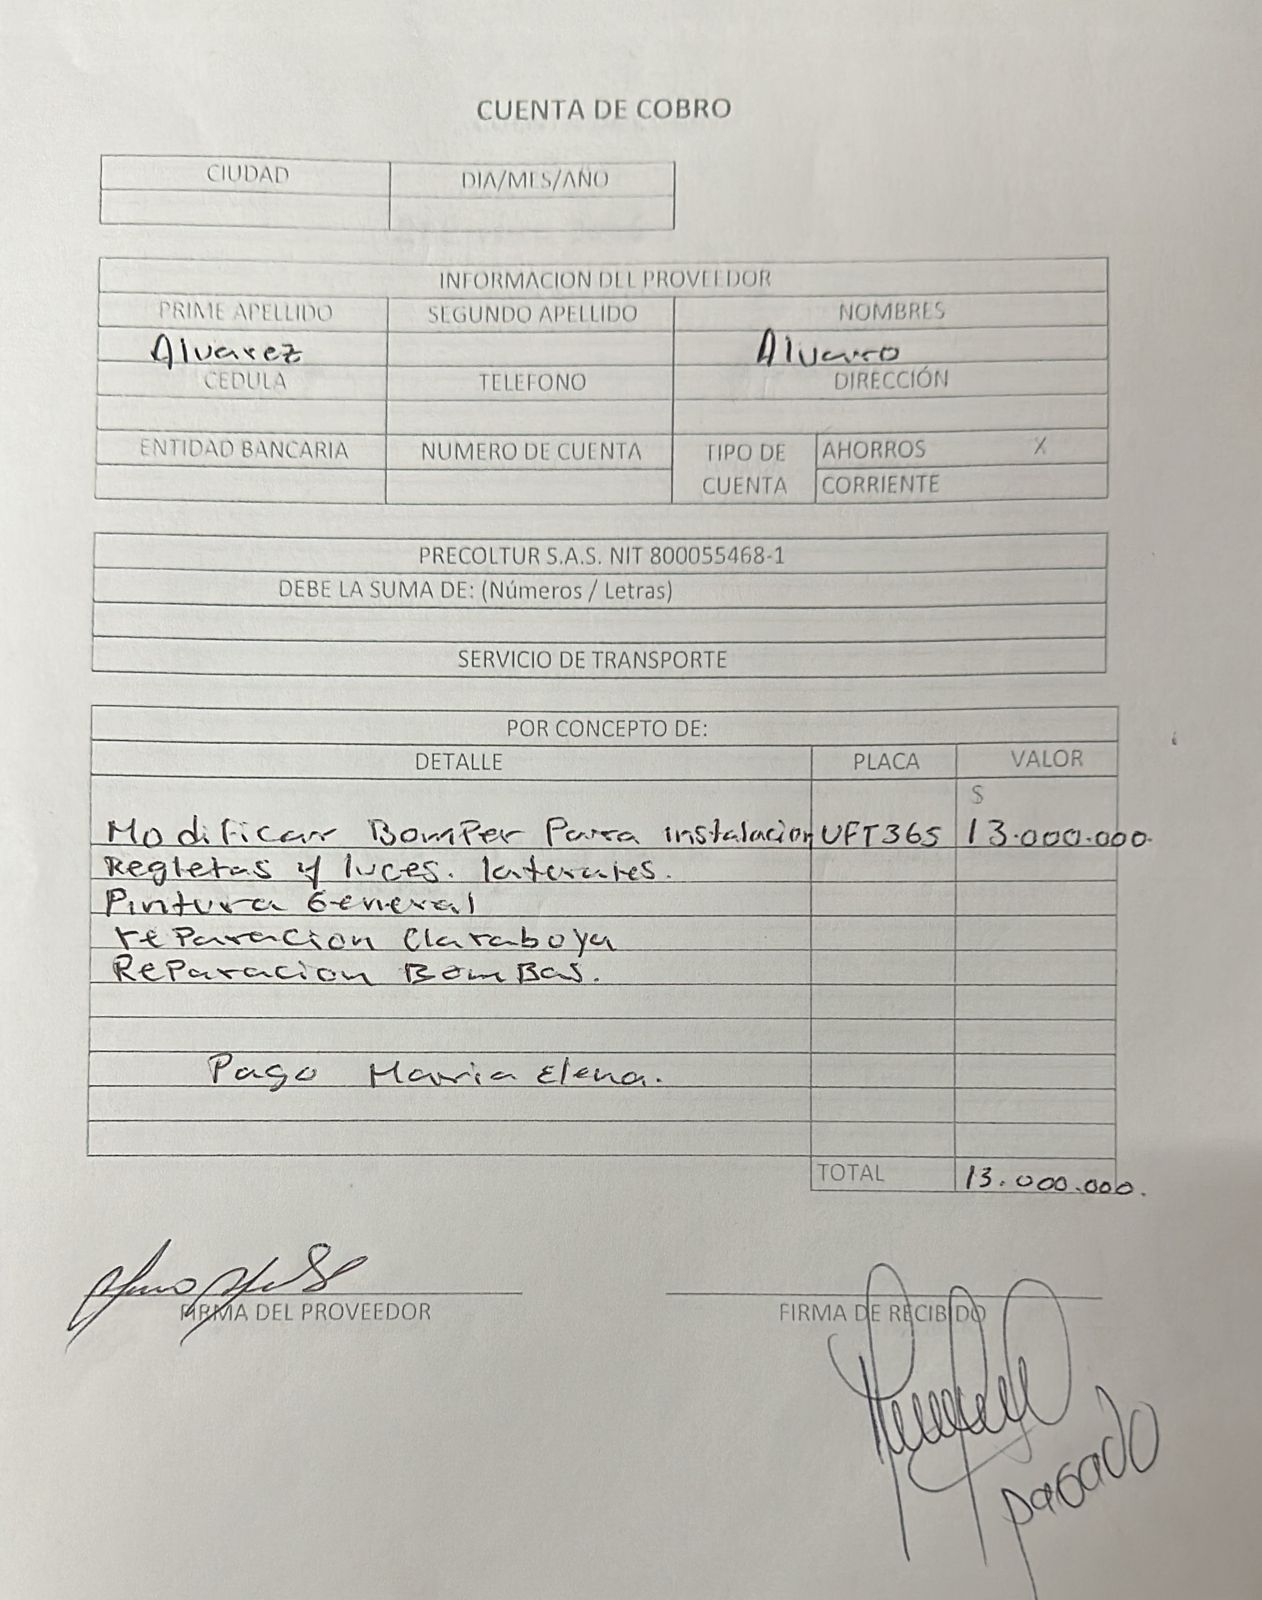 CUENTA DE COBRO
CIUDAD DIA/MES/AÑO
INFORMACION DEL PROVEEDOR
PRIME APELLIDO SEGUNDO APELLIDO NOMBRES
Alvarez Alvaro
CEDULA TELEFONO DIRECCIÓN
ENTIDAD BANCARIA NUMERO DE CUENTA TIPO DE CUENTA AHORROS X
CORRIENTE
PRECOLTUR S.A.S. NIT 800055468-1
DEBE LA SUMA DE: (Números / Letras)
SERVICIO DE TRANSPORTE
POR CONCEPTO DE:
DETALLE PLACA VALOR
$
Modificar BomPer Para instalacion UFT365 13.000.000.
Regletas y luces. laterales.
Pintura General
reParacion Claraboya
RePavacion BomBas.
Pago Maria Elena.
TOTAL 13.000.000.
FIRMA DEL PROVEEDOR FIRMA DE RECIBIDO
pagado